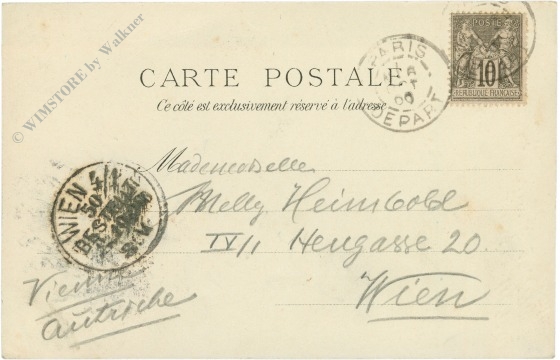 © WIMSTORE by Walkner
POSTES
10
REPUBLIQUE FRANÇAISE
PARIS
DEPART
CARTE POSTALE
Ce côté est exclusivement réservé à l'adresse
Mademoiselle
Melly Heimbold
IV/1 Heugasse 20.
Wien
WIEN 4/1
Vienne
Autriche